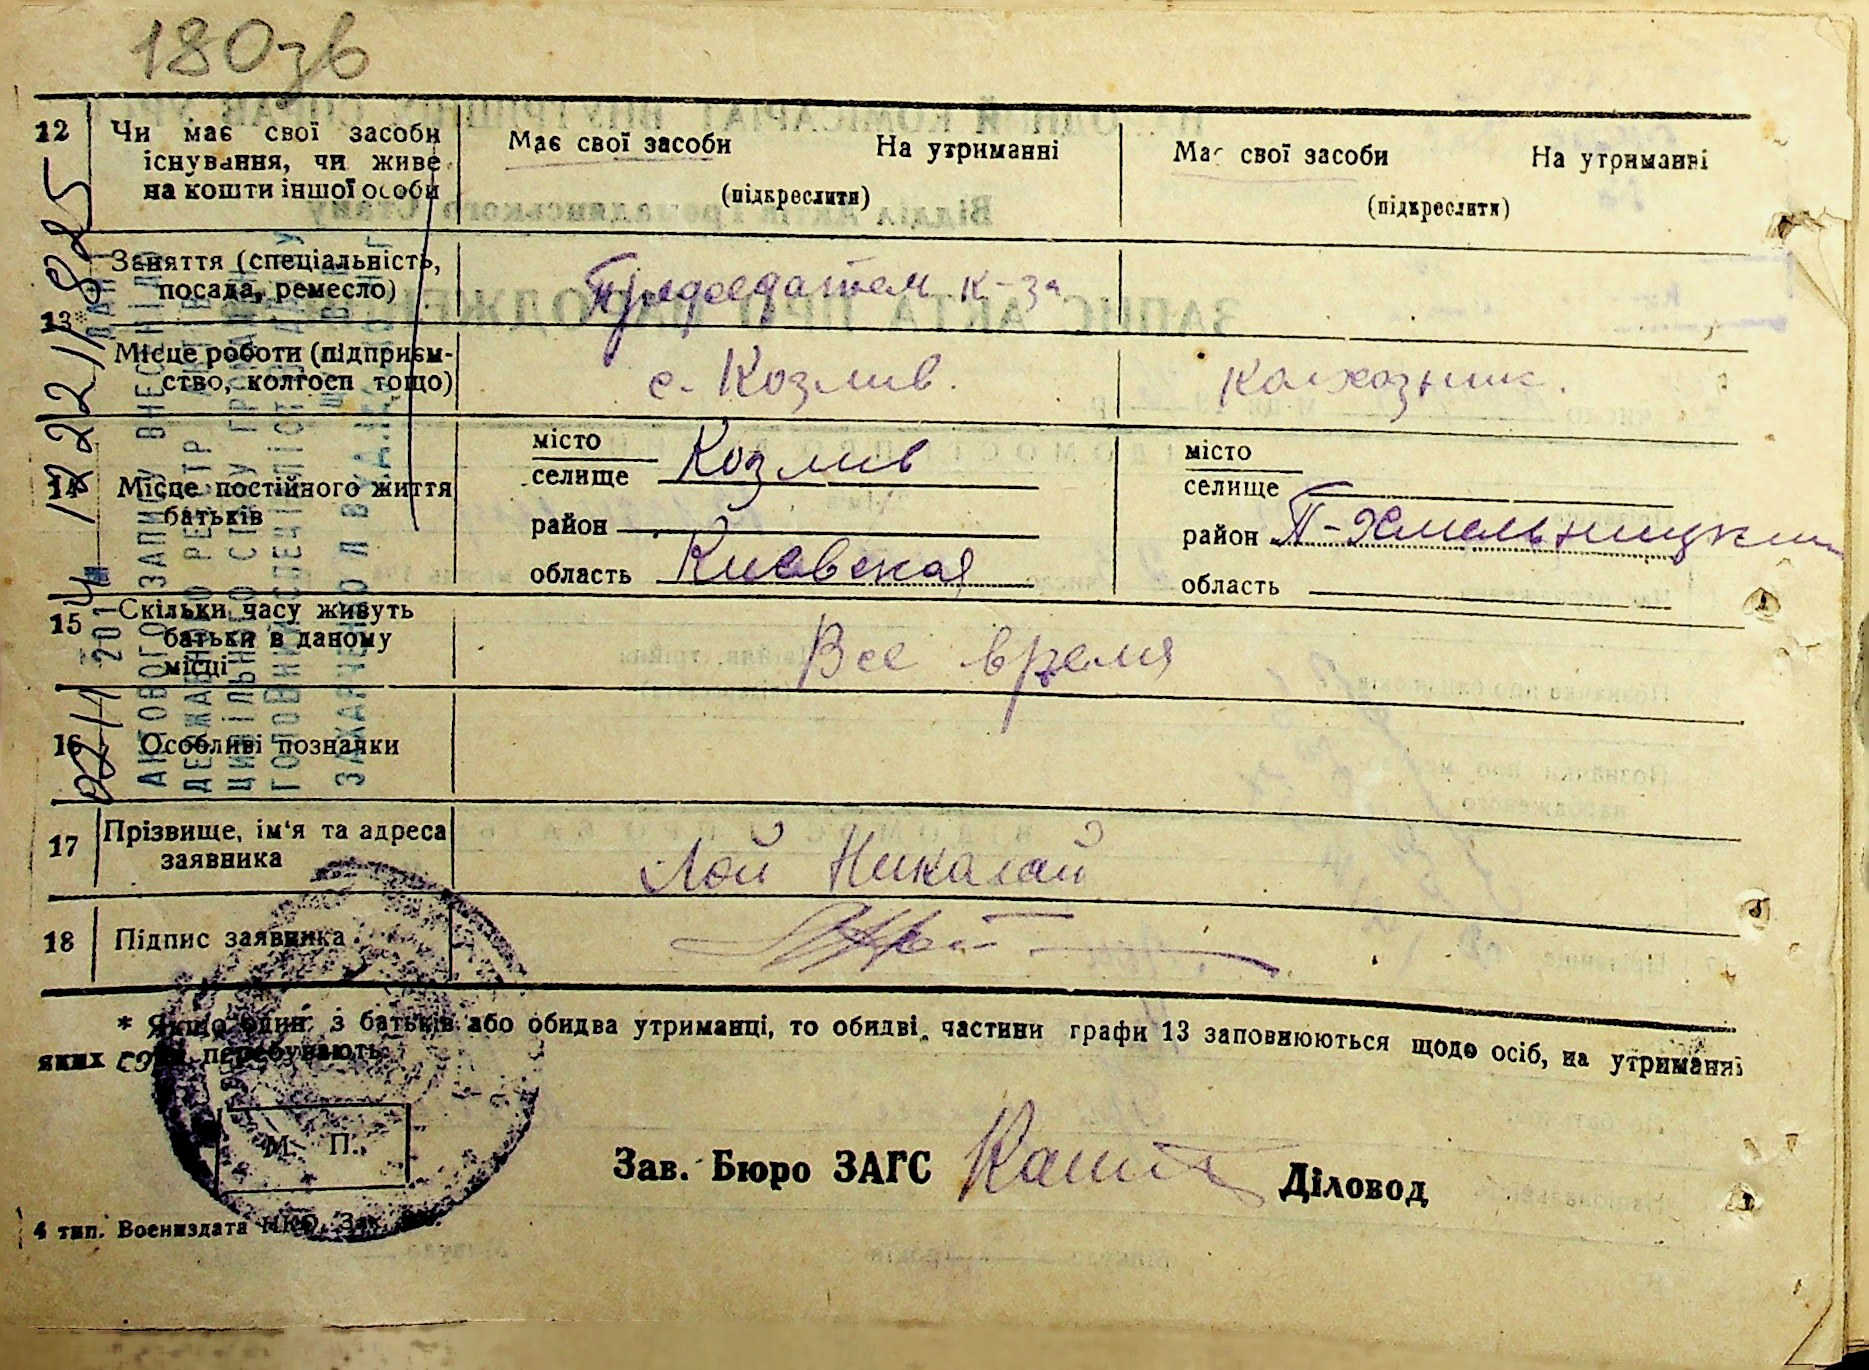 180зв
12 Чи має свої засоби існування, чи живе на кошти іншої особи
Має свої засоби На утриманні
(підкреслити)
Має свої засоби На утриманні
(підкреслити)
13* Заняття (спеціальність, посада, ремесло)
Председатель к-за
Місце роботи (підприємство, колгосп тощо)
с. Козлив.
колхозник.
14 Місце постійного життя батьків
місто
селище Козлив
район
область Киевская
місто
селище
район П-Хмельницкий
область
15 Скільки часу живуть батьки в даному місці
Все время
16 Особливі познаки
17 Прізвище, ім'я та адреса заявника
Лой Николай
18 Підпис заявника
* Якщо один з батьків або обидва утриманці, то обидві частини графи 13 заповнюються щодо осіб, на утриманні
яких вони перебувають.
М. П.
Зав. Бюро ЗАГС
Діловод
4 тип. Воениздата НКО. Зак.
АКТОВОГО ЗАПИСУ ВНЕСЕНІ ДО
ДЕРЖАВНОГО РЕЄСТРУ АКТІВ
ЦИВІЛЬНОГО СТАНУ ГРОМАДЯН
ГОЛОВНИЙ СПЕЦІАЛІСТ ВІДДІЛУ
ЗАХАРЧЕНКО Л В